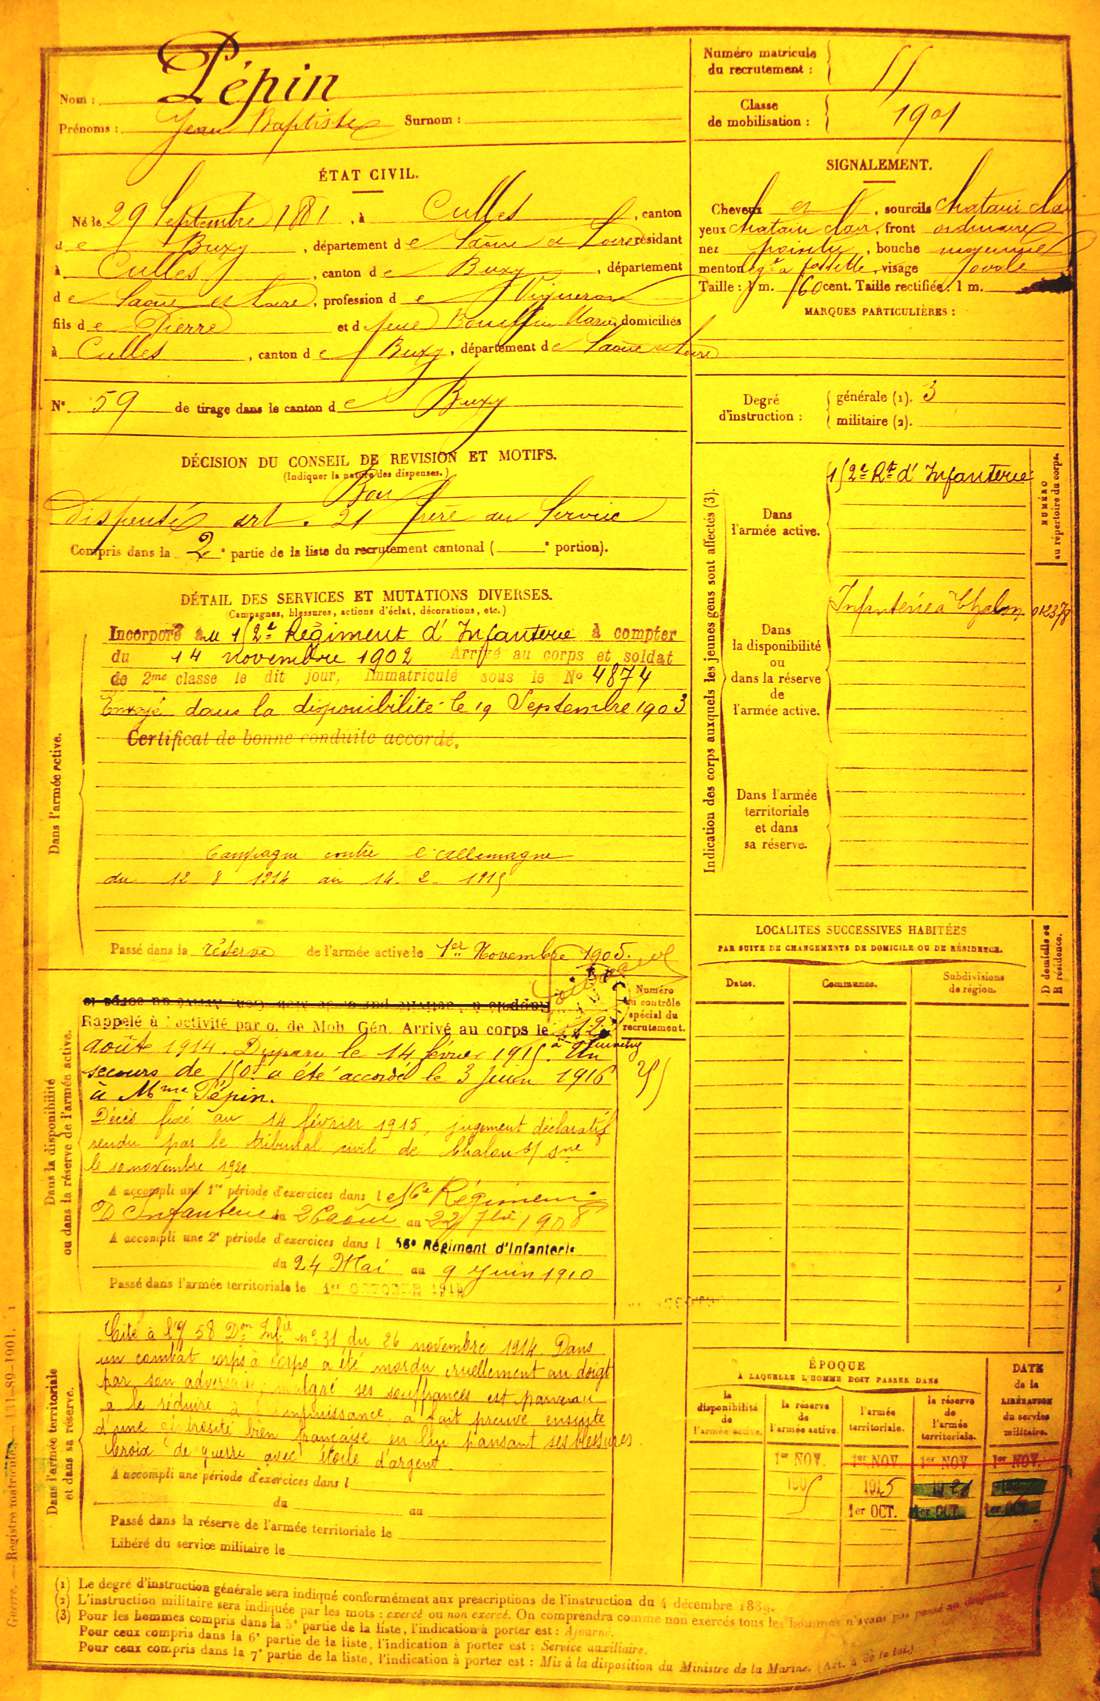 Nom : Pépin
Prénoms : Jean Baptiste Surnom :
Numéro matricule
du recrutement :
Classe
de mobilisation : 1901
ÉTAT CIVIL.
Né le 29 Septembre 1881, à Culles, canton
de Buxy, département de Saône et Loire résidant
à Culles, canton de Buxy, département
de Saône et Loire, profession de Vigneron
fils de Pierre et de feue Marie domiciliés
à Culles, canton de Buxy, département de Saône et Loire
N° 59 de tirage dans le canton de Buxy
SIGNALEMENT.
Cheveux et sourcils chatain clair
yeux chatain clair, front ordinaire
nez pointu, bouche moyenne
menton à fossette, visage ovale
Taille : 1 m. 60 cent. Taille rectifiée : 1 m.
MARQUES PARTICULIÈRES :
Degré
d'instruction :
générale (1). 3
militaire (2).
DÉCISION DU CONSEIL DE REVISION ET MOTIFS.
(Indiquer la nature des dispenses.)
Bon
Dispensé art. 21 frère au Service
Compris dans la 2e partie de la liste du recrutement cantonal ( e portion).
DÉTAIL DES SERVICES ET MUTATIONS DIVERSES.
(Campagnes, blessures, actions d'éclat, décorations, etc.)
Dans l'armée active.
Incorporé au 152e Régiment d'Infanterie à compter
du 14 novembre 1902 Arrivé au corps et soldat
de 2me classe le dit jour, Immatriculé sous le N° 4874
Envoyé dans la disponibilité le 19 Septembre 1903
Certificat de bonne conduite accordé.
Campagne contre l'Allemagne
du 12 8 1914 au 14-2-1915
Passé dans la réserve de l'armée active le 1er Novembre 1905.
Dans la disponibilité
ou dans la réserve de l'armée active.
Numéro
au contrôle
spécial du
recrutement.
Rappelé à l'activité par o. de Mob. Gén. Arrivé au corps le 12
août 1914. Disparu le 14 février 1915 à Un
secours de 150f a été accordé le 3 Juin 1916
à Mme Pépin.
Décès fixé au 14 février 1915, jugement déclaratif
rendu par le tribunal civil de Chalon s/ Sne
le 10 novembre 1920
A accompli une 1re période d'exercices dans le 56e Régiment
d'Infanterie du 26 août au 22 7bre 1908
A accompli une 2e période d'exercices dans l 56e Régiment d'Infanterie
du 24 Mai au 9 Juin 1910
Passé dans l'armée territoriale le 1er OCTOBRE 1914
Dans l'armée territoriale
et dans sa réserve.
Cité à l'O 58 Don Infie n° 31 du 26 novembre 1914. Dans
un combat corps à corps a été mordu cruellement au doigt
par son adversaire, malgré ses souffrances est parvenu
à le réduire à l'impuissance, a fait preuve ensuite
d'une générosité bien française en lui pansant ses blessures
Croix de guerre avec étoile d'argent.
A accompli une période d'exercices dans l
du au
Passé dans la réserve de l'armée territoriale le
Libéré du service militaire le
Indication des corps auxquels les jeunes gens sont affectés (3).
NUMÉRO
au répertoire du corps.
Dans
l'armée active.
152e Rt d'Infanterie
Dans
la disponibilité
ou
dans la réserve
de
l'armée active.
Infanterie à Chalon
Dans l'armée
territoriale
et dans
sa réserve.
LOCALITÉS SUCCESSIVES HABITÉES
PAR SUITE DE CHANGEMENTS DE DOMICILE OU DE RÉSIDENCE.
Dates.
Communes.
Subdivisions
de région.
D domicile ou
R résidence.
ÉPOQUE
À LAQUELLE L'HOMME DOIT PASSER DANS
la
disponibilité
de
l'armée active.
la réserve
de
l'armée active.
l'armée
territoriale.
la réserve
de
l'armée
territoriale.
DATE
de la
LIBÉRATION
du service
militaire.
1er NOV. 1er NOV 1er NOV 1er NOV
1905 1915 1921
1er OCT. 1er OCT. 1er OCT.
(1) Le degré d'instruction générale sera indiqué conformément aux prescriptions de l'instruction du 4 décembre 1889.
(2) L'instruction militaire sera indiquée par les mots : exercé ou non exercé. On comprendra comme non exercés tous les hommes n'ayant pas passé au drapeau.
(3) Pour les hommes compris dans la 5e partie de la liste, l'indication à porter est : Ajourné.
Pour ceux compris dans la 6e partie de la liste, l'indication à porter est : Service auxiliaire.
Pour ceux compris dans la 7e partie de la liste, l'indication à porter est : Mis à la disposition du Ministre de la Marine.
Guerre. — Registre matricule. — 131-89-1901.